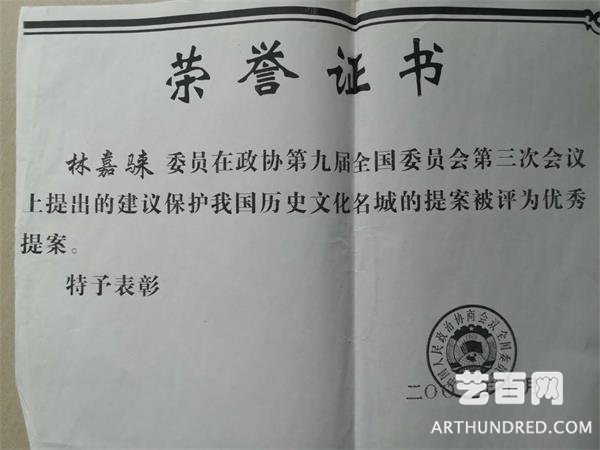 荣誉证书
林嘉騋 委员在政协第九届全国委员会第三次会议
上提出的建议保护我国历史文化名城的提案被评为优秀
提案。
特予表彰
中国人民政治协商会议全国委员会
二〇〇
月
艺百网
ARTHUNDRED.COM